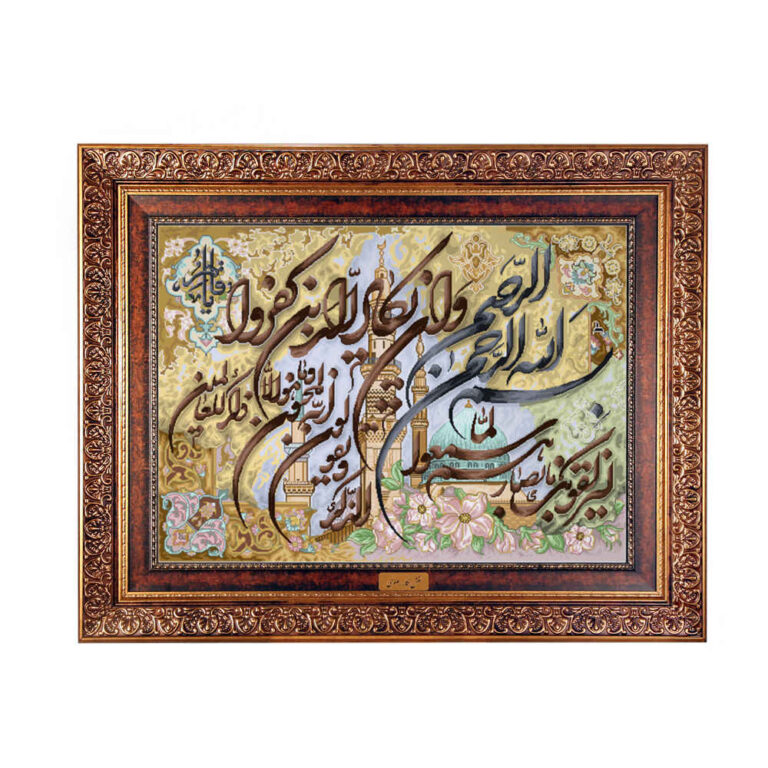 بسم الله الرحمن الرحیم
وان یکاد الذین کفروا
لیزلقونک بابصارهم لما سمعوا
الذکر و یقولون
انه لمجنون و ما هو الا
ذکر للعالمین
یا فاطمة الزهرا